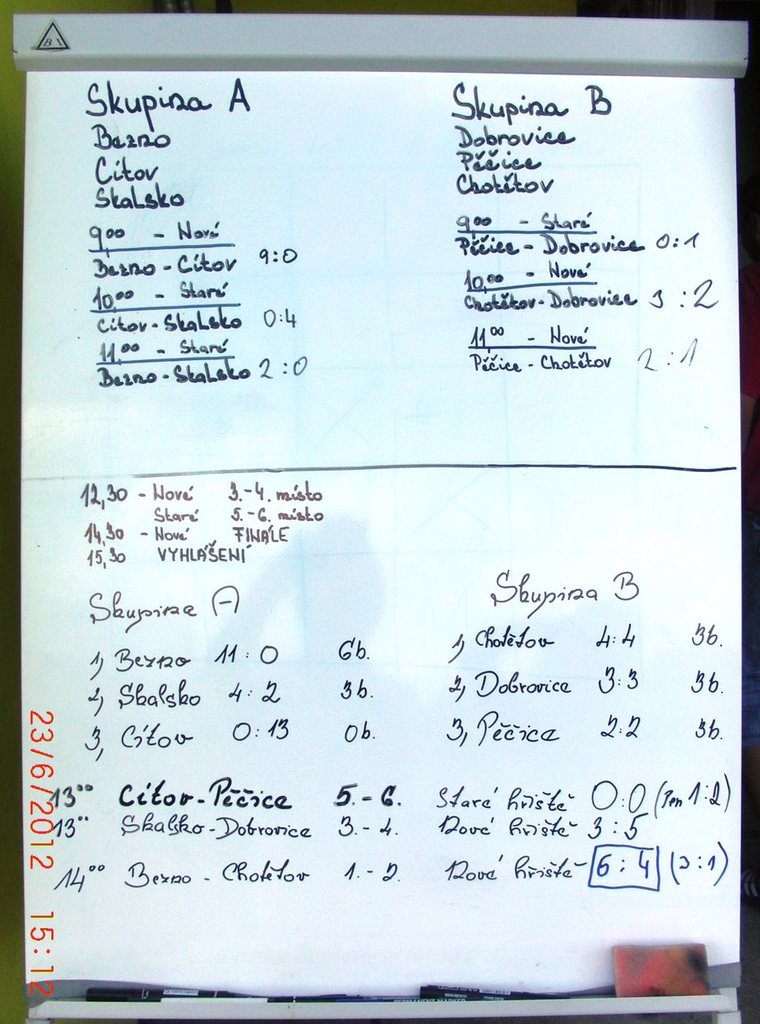 Skupina A
Bezno
Cítov
Skalsko
9,00 - Nové
Bezno - Cítov 9:0
10,00 - Staré
Cítov - Skalsko 0:4
11,00 - Staré
Bezno - Skalsko 2:0
Skupina B
Dobrovice
Pěčice
Chotětov
9,00 - Staré
Pěčice - Dobrovice 0:1
10,00 - Nové
Chotětov - Dobrovice 3:2
11,00 - Nové
Pěčice - Chotětov 2:1
12,30 - Nové 3.-4. místo
Staré 5.-6. místo
14,30 - Nové FINÁLE
15,30 VYHLÁŠENÍ
Skupina A
1, Bezno 11:0 6b.
2, Skalsko 4:2 3b.
3, Cítov 0:13 0b.
Skupina B
1, Chotětov 4:4 3b.
2, Dobrovice 3:3 3b.
3, Pěčice 2:2 3b.
1300 Cítov - Pěčice 5.-6. Staré hřiště 0:0 (Pen 1:2)
1300 Skalsko - Dobrovice 3.-4. Nové hřiště 3:5
1400 Bezno - Chotětov 1.-2. Nové hřiště 6:4 (3:1)
23/6/2012 15:12
PERMANENT MARKER